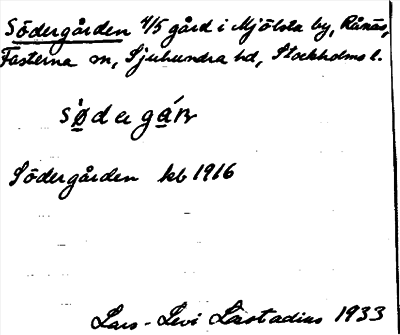 Södergården 4/5 gård i Mjölsta by, Rånäs,
Fasterna sn, Sjuhundra hd, Stockholms l.
sø̀dergáṉ
Södergården kb 1916
Lars-Levi Læstadius 1933